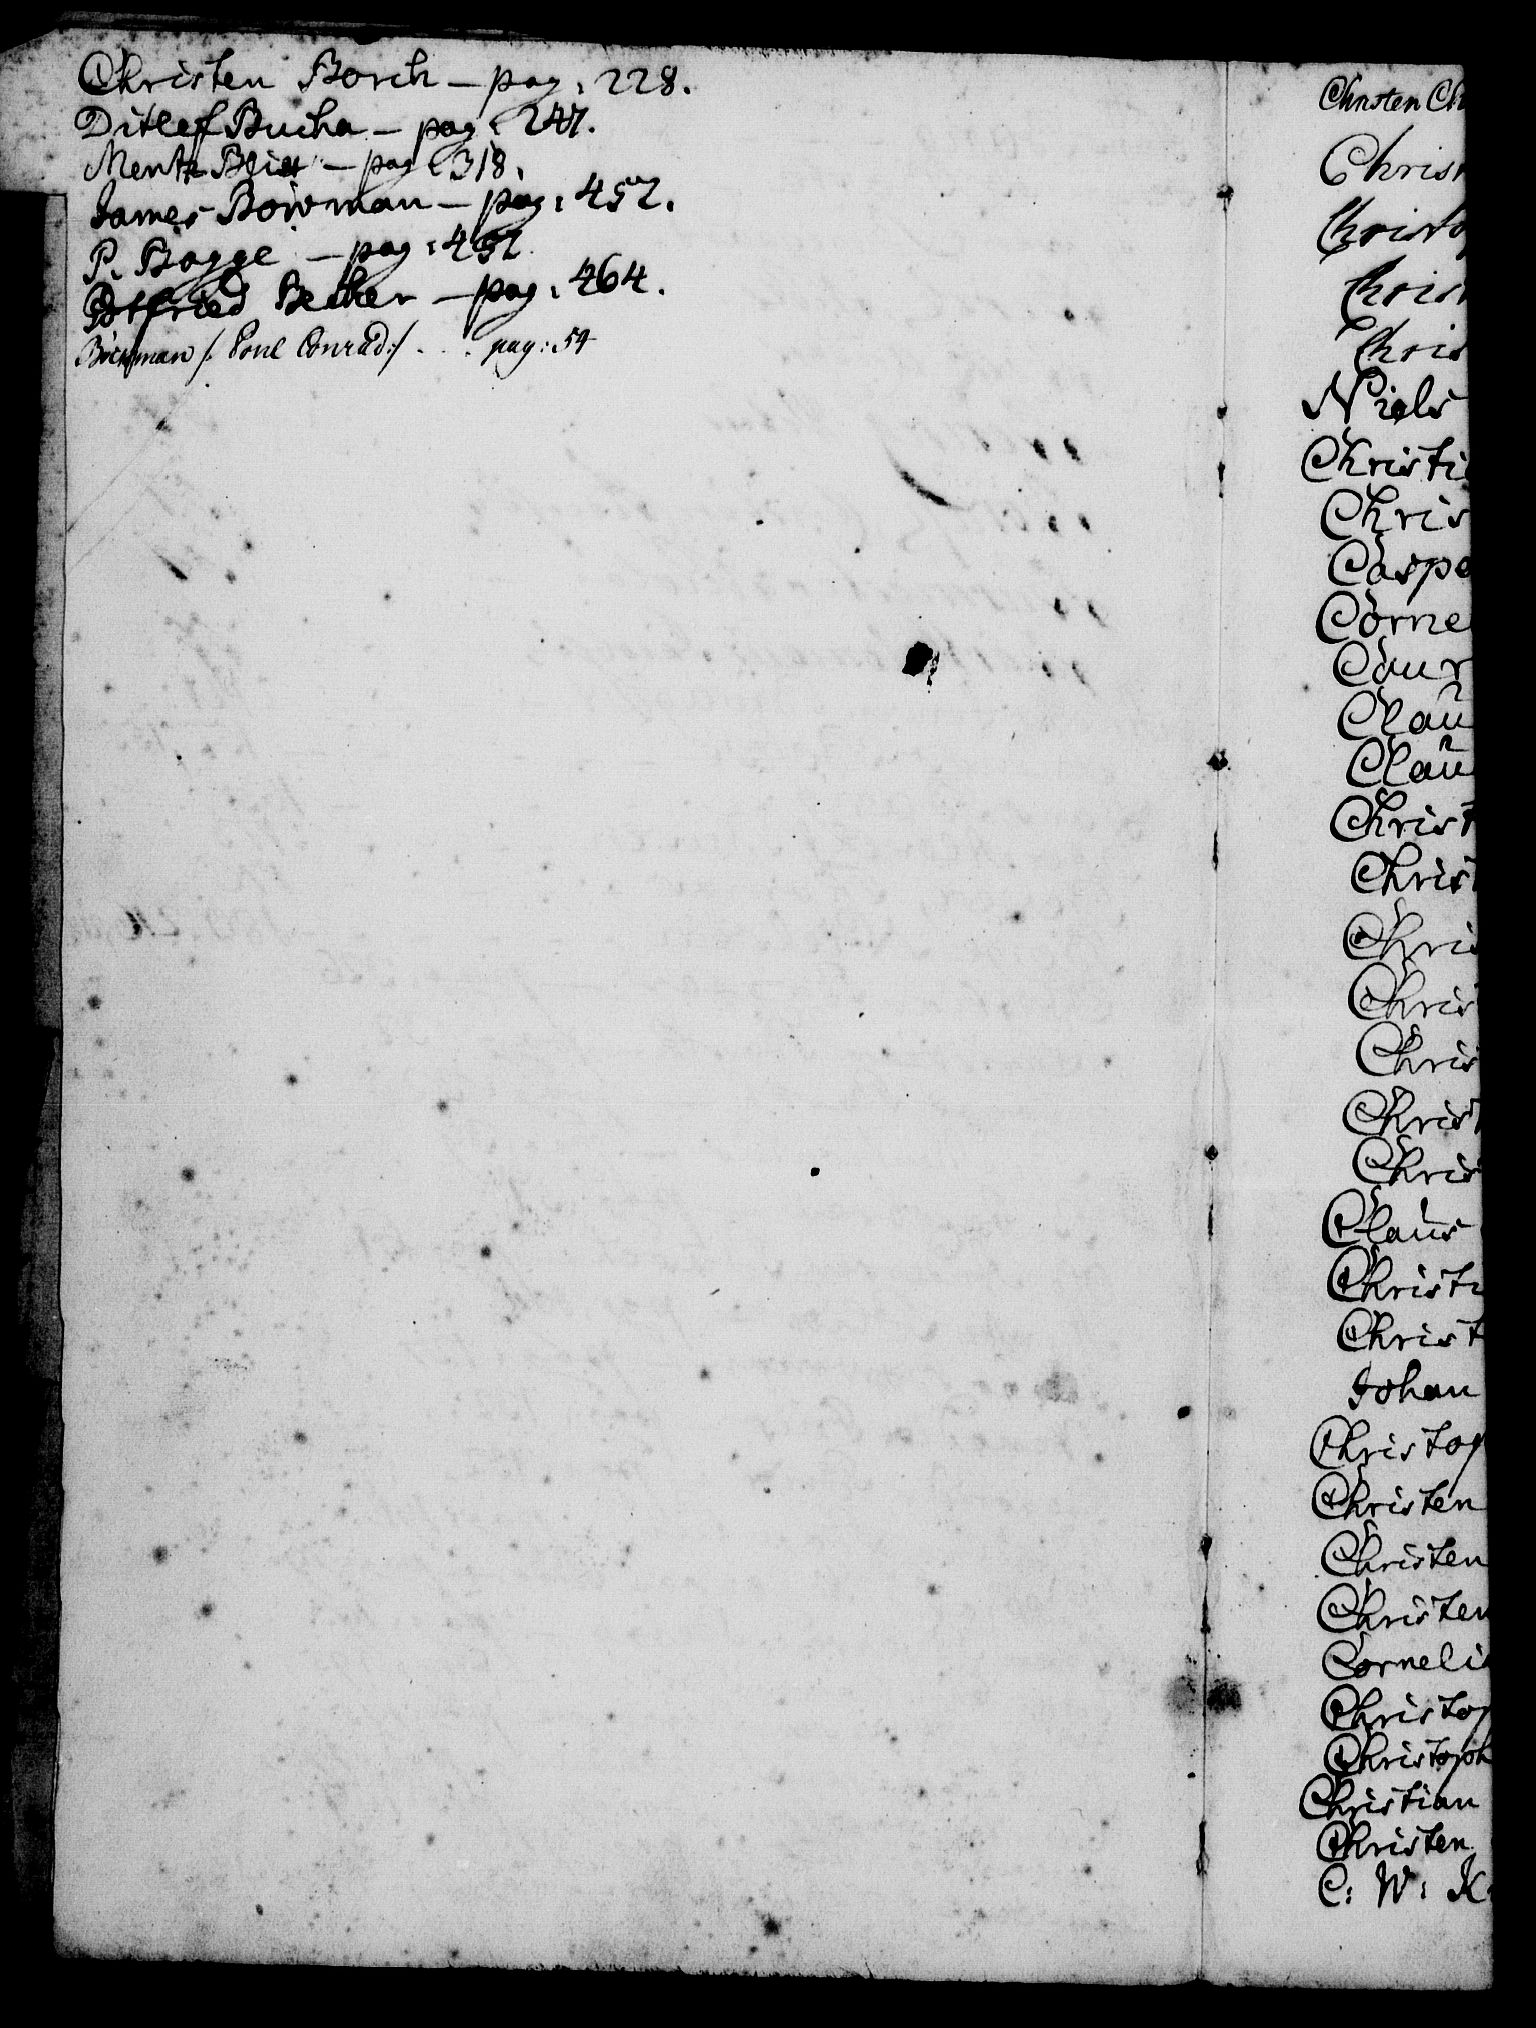 Christen Borch — pag: 228.
Ditlef Bucha — pag: 247.
Mentz — pag: 318.
James Bowman — pag: 457.
P. Bagge — pag: 457
Becker — pag: 464.
Böckman /: Conrad:/ . . . pag: 54
Christen Ch
Chris
Christo
Chris
Chris
Niels
Christi
Chris
Caspe
Corne
Cour
Clau
Clau
Christ
Christ
Chris
Chris
Chris
Christ
Chris
Claus
Christi
Christ
Johan
Christop
Christen
Christen
Christen
Corneli
Christop
Christoph
Christian
Christen
C: W: K